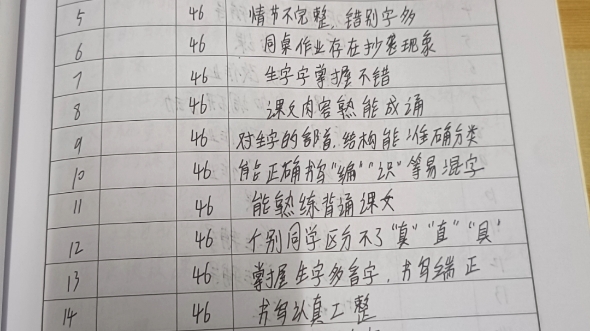 5 46 情节不完整,错别字多
6 46 同桌作业存在抄袭现象
7 46 生字字掌握不错
8 46 课文内容熟能成诵
9 46 对生字的部首、结构能准确分类
10 46 能正确书写"编""识"等易混字
11 46 能熟练背诵课文
12 46 个别同学区分不了"真""直""具"
13 46 掌握生字多音字,书写端正
14 46 书写认真工整